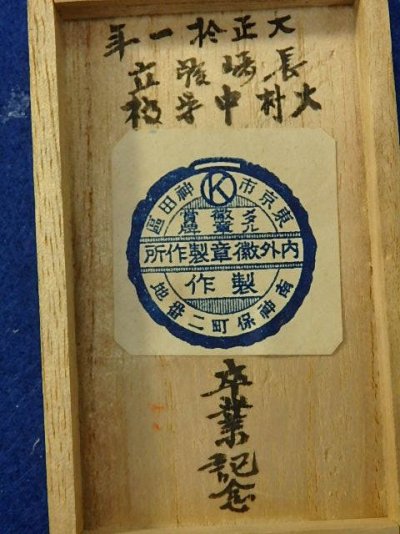 大正拾一年
長崎縣立
大村中学校
東京市神田區
K
メダル
徽章
内外徽章製作所
製作
南神保町二番地
卒業記念